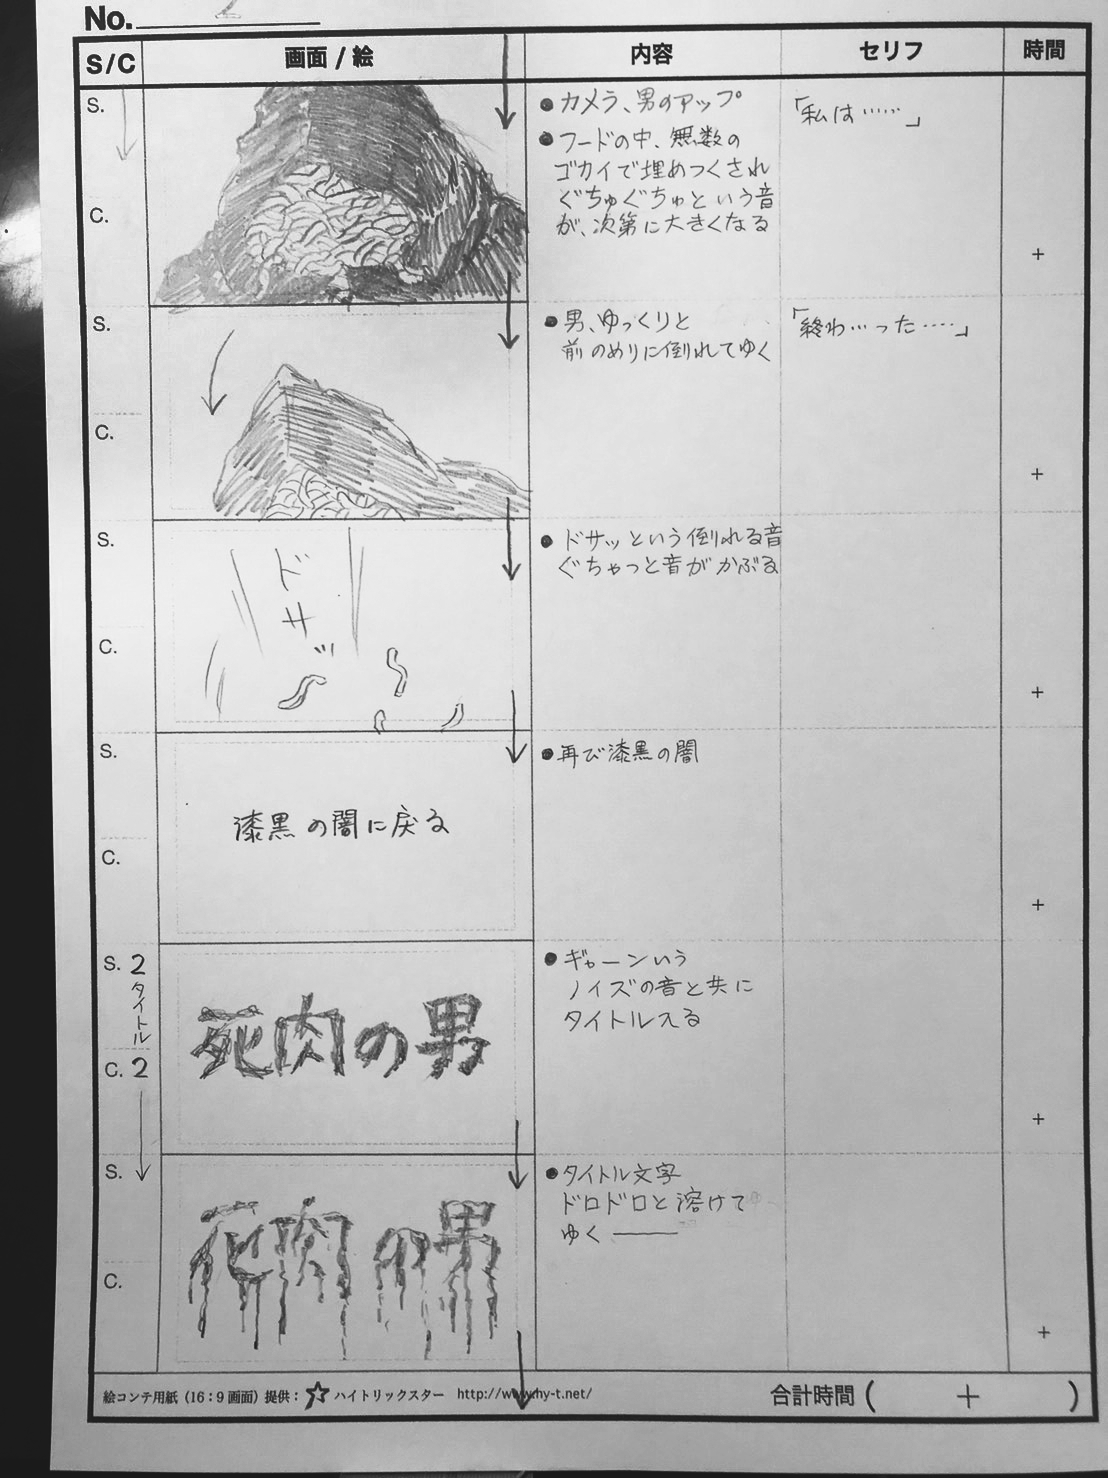 No. 2
S/C 画面 / 絵 内容 セリフ 時間
S.
C.
●カメラ、男のアップ
●フードの中、無数の
ゴカイで埋めつくされ
ぐちゅぐちゅという音
が、次第に大きくなる
「私は……」
+
S.
C.
●男、ゆっくりと
前のめりに倒れてゆく
「終わ…った……」
+
S.
C.
ドサッ
●ドサッという倒れる音
ぐちゃっと音がかぶる
+
S.
C.
漆黒の闇に戻る
●再び漆黒の闇
+
S. 2
タイトル
C. 2
死肉の男
●ギャーンいう
ノイズの音と共に
タイトル入る
+
S.
C.
死肉の男
●タイトル文字
ドロドロと溶けて
ゆく――
+
絵コンテ用紙（16：9画面）提供：☆ハイトリックスター http://www.hy-t.net/
合計時間（ + ）